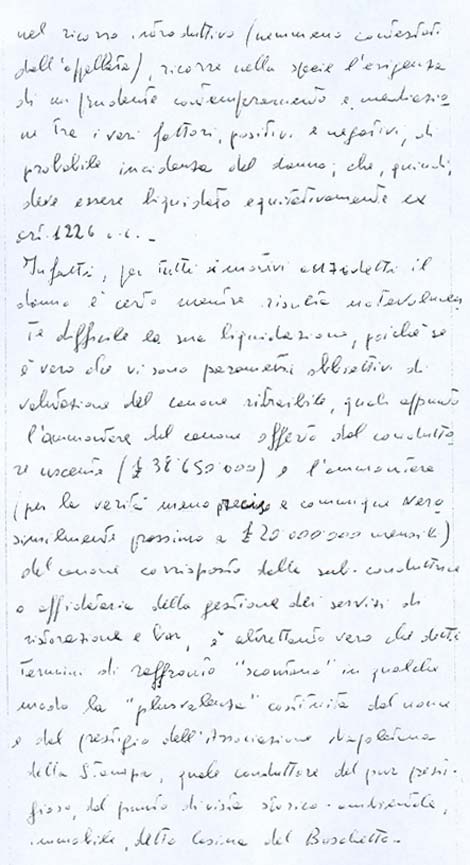 nel ricorso introduttivo (nemmeno contestati
dall'appellata), ricorre nella specie l'esigenza
di un prudente contemperamento e mediazio
ne tra i vari fattori, positivi e negativi, di
probabile incidenza del danno; che, quindi,
deve essere liquidato equitativamente ex
art. 1226 c.c. -
Infatti, per tutti i motivi anzidetti il
danno è certo mentre risulta notevolmen
te difficile la sua liquidazione, poiché se
è vero che vi sono parametri obbiettivi di
valutazione del canone ritraibile, quali appunto
l'ammontare del canone offerto dal condutto
re uscente (£ 38.650.000) e l'ammontare
(per la verità meno preciso e comunque vero
similmente prossimo a £ 20.000.000 mensili)
del canone corrisposto dalla sub-conduttrice
o affidataria della gestione dei servizi di
ristorazione e bar, è altrettanto vero che detti
termini di raffronto "scontano" in qualche
modo la "plusvalenza" costituita dal nome
e dal prestigio dell'Associazione Napoletana
della Stampa, quale conduttore del pur presti-
gioso, dal punto di vista storico-ambientale,
immobile, detto Casina del Boschetto.-